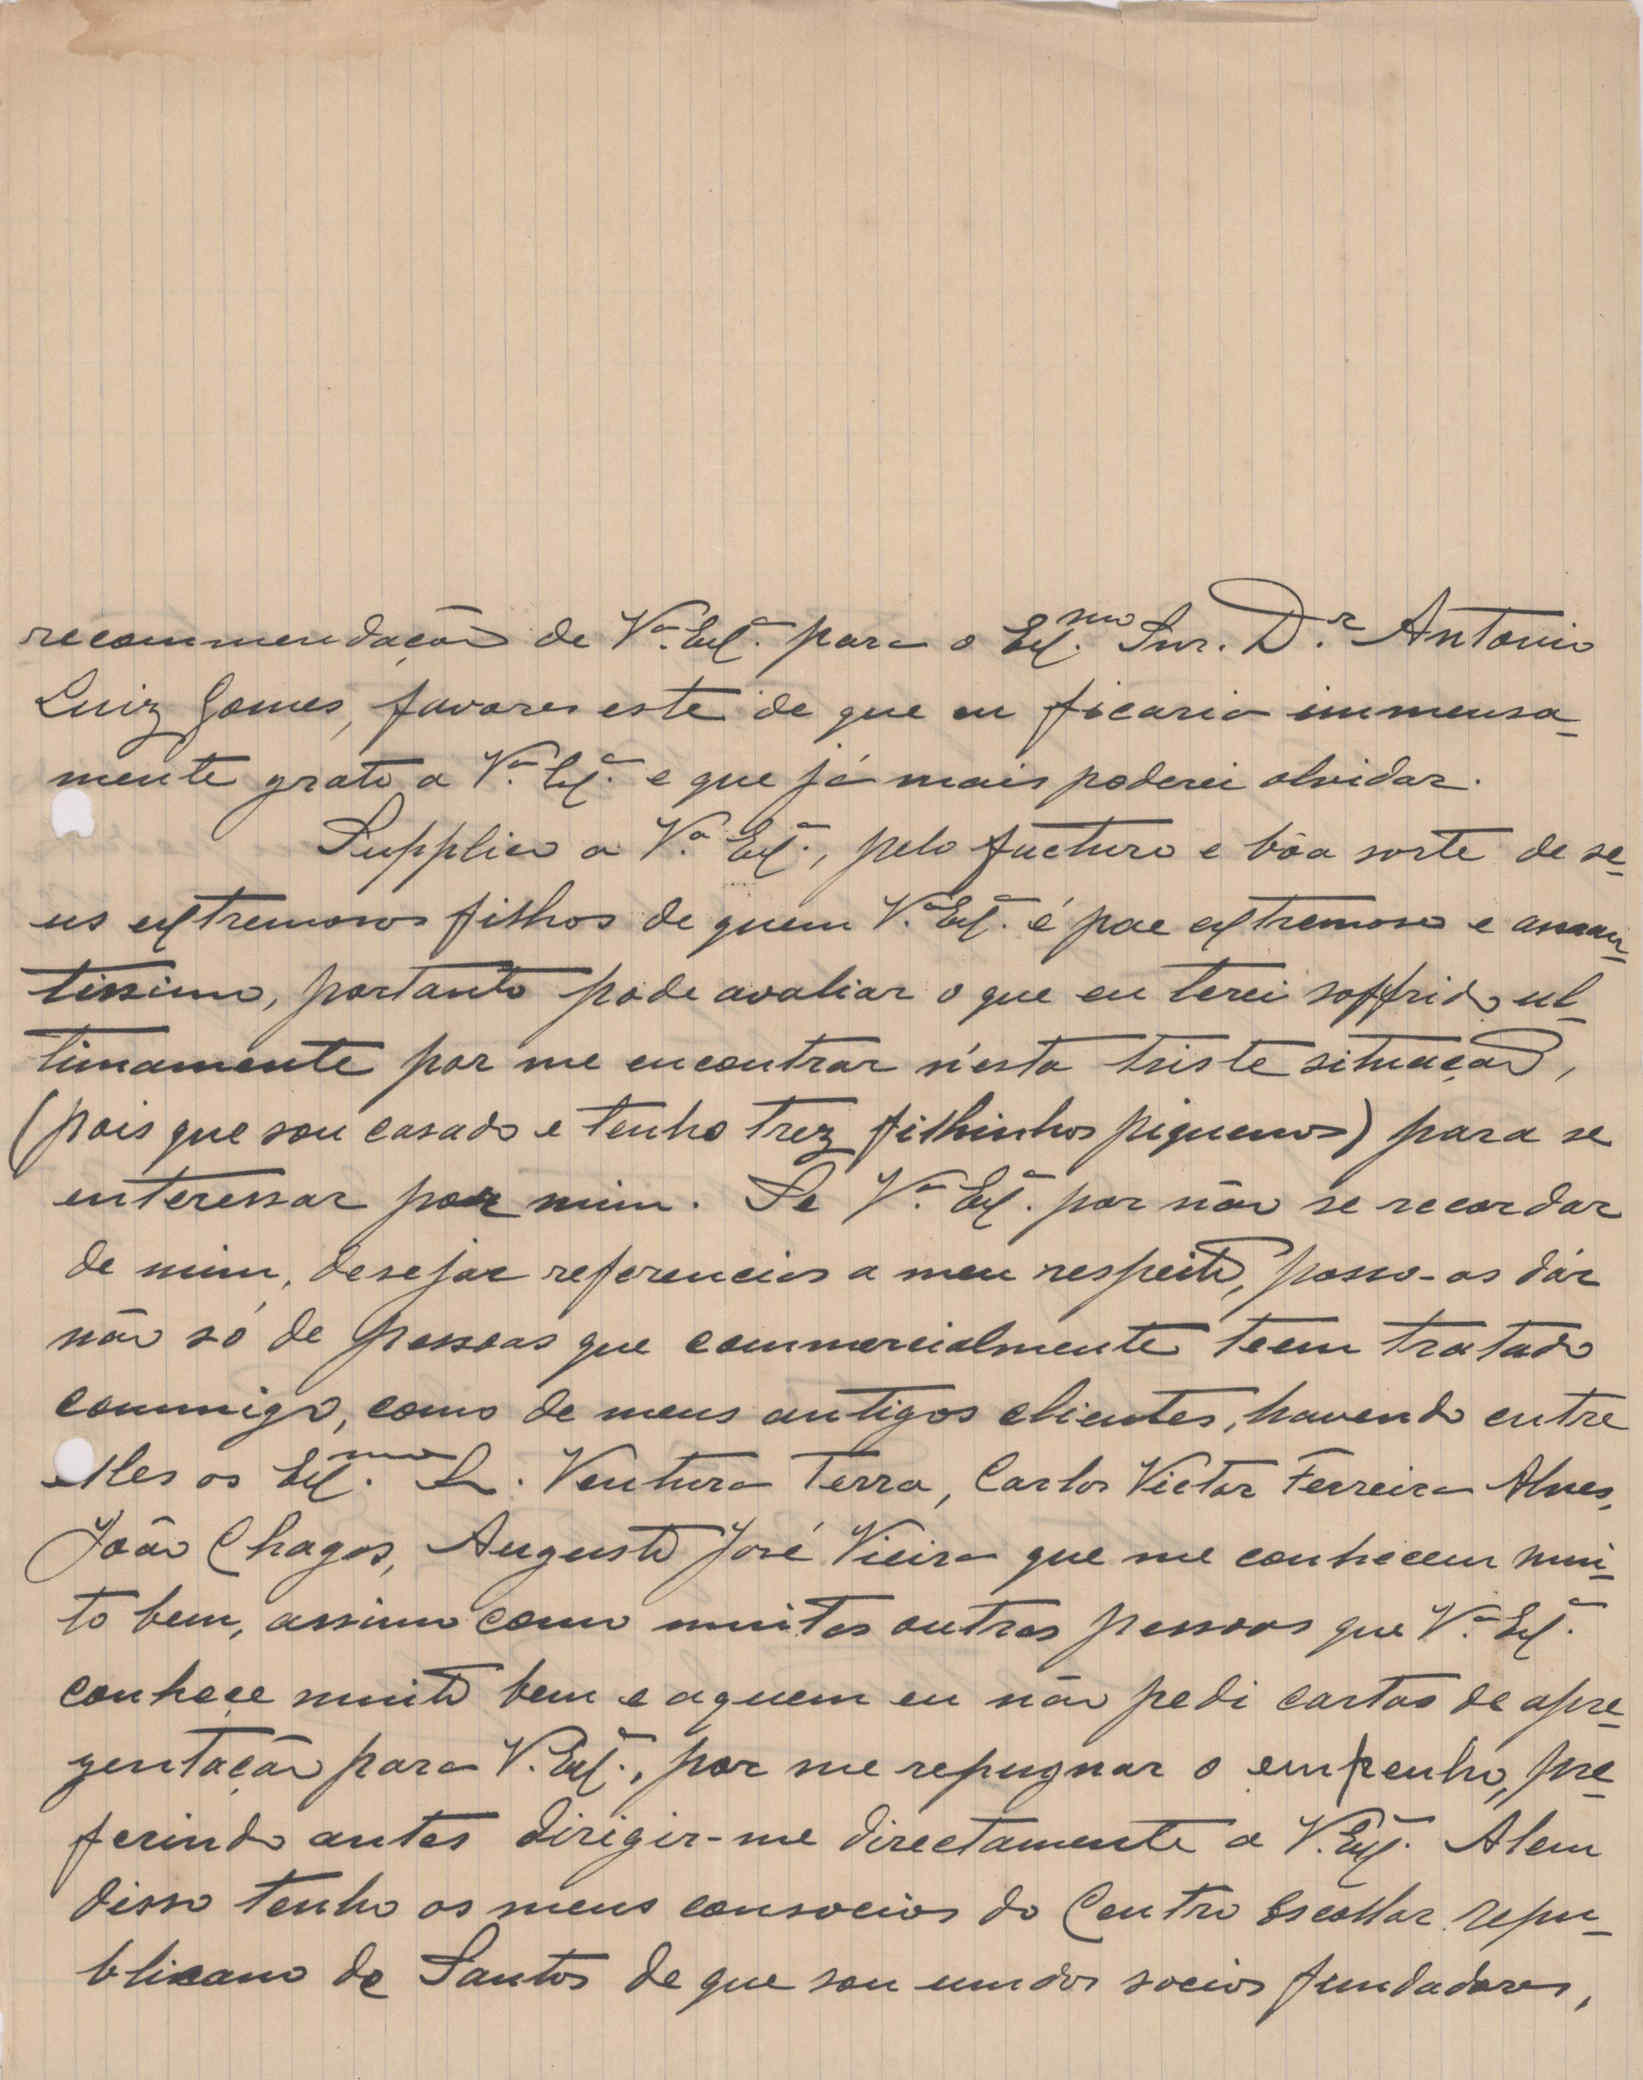 recommendação de V.ª Ex.ª para o Ex.mo Snr. D.r Antonio
Luiz Gomes, favores este de que eu ficaria immensa-
mente grato a V.ª Ex.ª e que já mais poderei olvidar.
Supplico a V.ª Ex.ª, pelo fucturo e bôa sorte de se-
us extremosos filhos de quem V.ª Ex.ª é pae extremoso e aman-
tissimo, portanto pode avaliar o que eu terei soffrido ul-
timamente por me encontrar n'esta triste situação,
(pois que sou casado e tenho trez filhinhos piquenos) para se
enteressar por mim. Se V.ª Ex.ª por não se recordar
de mim, desejar referencias a meu respeito, posso-as dár
não só de pessoas que commercialmente teem tratado
commigo, como de meus antigos clientes, havendo entre
elles os Ex.mo S. Ventura Terra, Carlos Victor Ferreira Alves,
João Chagas, Augusto José Vieira que me conhecem mui-
to bem, assim como muitas outras pessoas que V.ª Ex.ª
conhece muito bem e aquem eu não pedi cartas de apre-
zentação para V. Ex.ª, por me repugnar o empenho, pre-
ferindo antes dirigir-me directamente a V. Ex.ª Alem
disso tenho os meus consocios do Centro Escollar repu-
blicano de Santos de que sou um dos socios fundadores,